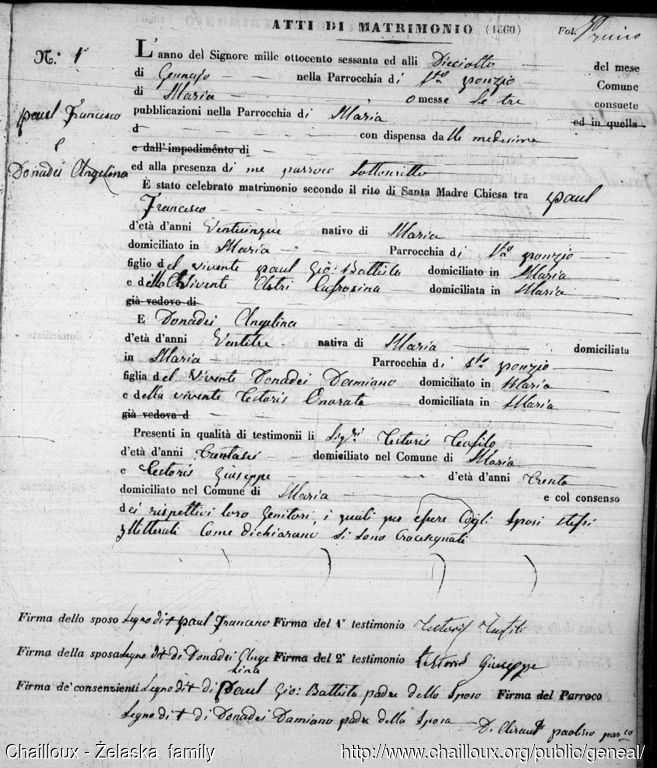 ATTI DI MATRIMONIO (1860) Fol. Primo
N.° 1°
L'anno del Signore mille ottocento sessanta ed alli Dicciotto del mese
di Gennajo nella Parrocchia di Sto ponzio Comune
di Maria o messe Le tre consuete
pubblicazioni nella Parrocchia di Maria ed in quella
d con dispensa dalle medesime
e dall'impedimento di
ed alla presenza di me parroco Sottoscritto
paul Francesco
e
Donadei Angelina
È stato celebrato matrimonio secondo il rito di Santa Madre Chiesa tra paul
Francesco
d'età d'anni Venticinque nativo di Maria
domiciliato in Maria Parrocchia di Sto ponzio
figlio del vivente paul Gio: Battista domiciliato in Maria
e della Vivente Eufrosina domiciliata in Maria
già vedovo di
E Donadei Angelina
d'età d'anni Ventitre nativa di Maria domiciliata
in Maria Parrocchia di Sto ponzio
figlia del Vivente Donadei Damiano domiciliato in Maria
e della vivente Tectoris Onorata domiciliata in Maria
già vedova d
Presenti in qualità di testimonii li Sigri Tectoris Teofilo
d'età d'anni domiciliato nel Comune di Maria
e Tectoris Giuseppe d'età d'anni Trenta
domiciliato nel Comune di Maria e col consenso
dei rispettivi loro genitori, i quali per essere Cogli Sposi stessi
Illitterati Come dichiarano si sono Crocesegnati
Firma dello sposo Segno di + paul Francesco Firma del 1° testimonio Tectoris
Firma della sposa Segno di + di Donadei Angelina Firma del 2° testimonio Tectoris Giuseppe
Firma de' consenzienti Segno di + di Paul Gio: Battista padre dello Sposo Firma del Parroco
Segno di + di Donadei Damiano padre della Sposa D. paolino parco
Chailloux - Želaska family http://www.chailloux.org/public/geneal/